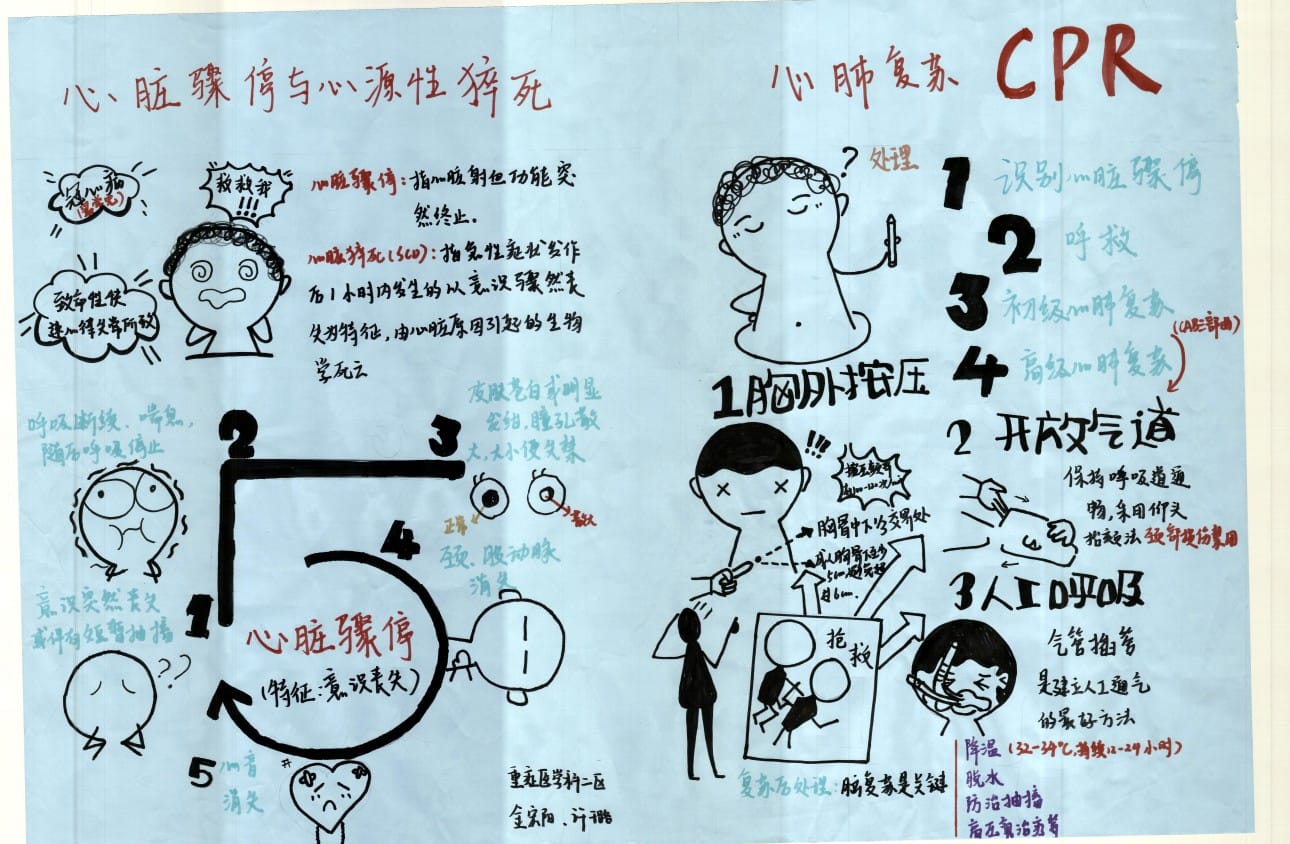 心脏骤停与心源性猝死
冠心病
救救我
!!!
致命性快
速心律失常所致
心脏骤停：指心脏射血功能突
然终止.
心脏猝死(SCD)：指急性症状发作
后1小时内发生的以意识骤然丧
失为特征,由心脏原因引起的生物
学死亡
呼吸断续、喘息,
随后呼吸停止
2
3
皮肤苍白或明显
发绀,瞳孔散
大,大小便失禁
正常
散大
4
颈、股动脉
消失
意识突然丧失
或伴有短暂抽搐
1
??
心脏骤停
(特征:意识丧失)
5
心音
消失
重症医学科二区
心肺复苏 CPR
?
处理
1 识别心脏骤停
2 呼救
3 初级心肺复苏
(CAB三部曲)
4 高级心肺复苏
1胸外按压
!!!
胸骨中下1/3交界处
2 开放气道
保持呼吸道通
畅,采用仰头
抬颏法 颈部损伤禁用
3人工呼吸
气管插管
是建立人工通气
的最好方法
抢救
复苏后处理：脑复苏是关键
降温 (32-34℃,持续12-24小时)
脱水
防治抽搐
高压氧治疗等